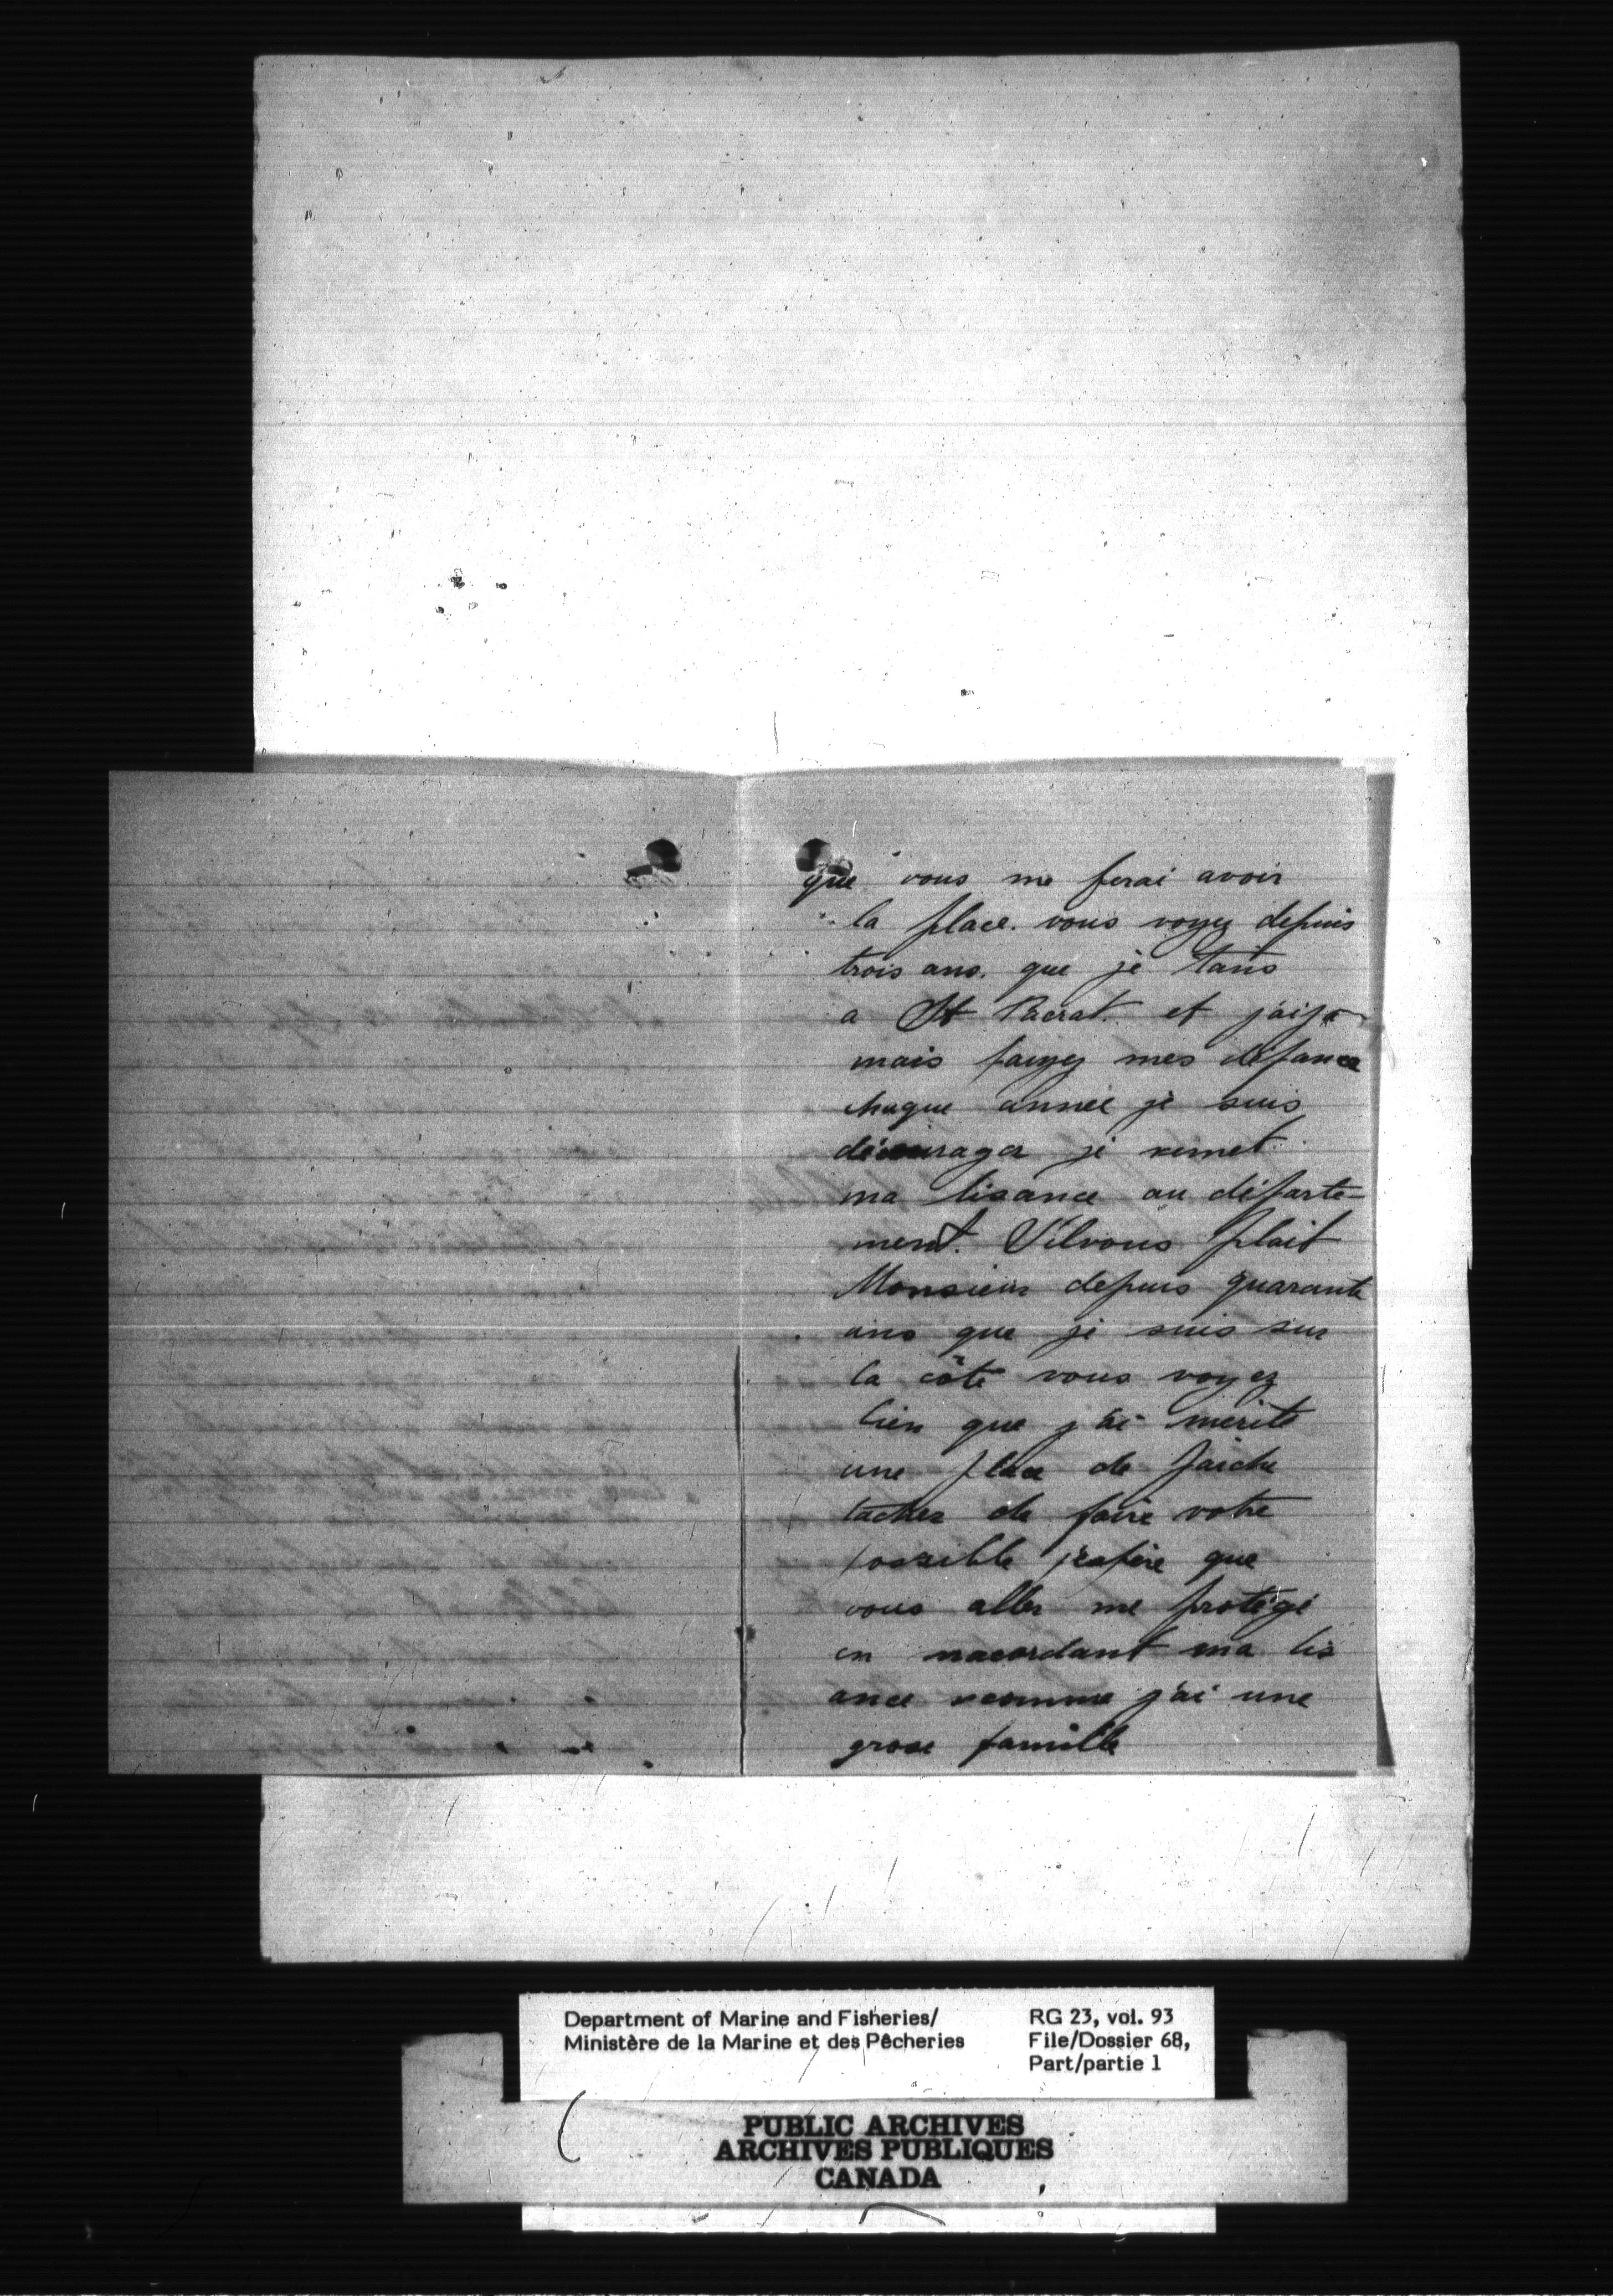 que vous me ferai avoir
la place. vous voyez depuis
trois ans. que je tans
a St Pacrat. et j'ai ja
mais paiyez mes dépance
chaque année je suis
décourager je remet
ma lisance au départe-
ment. S'ilvous plait
Monsieur depuis quarante
ans que je suis sur
la côte vous voyez
bien que j'ai mérité
une place de paiche
tacher de faire votre
possible j'espère que
vous aller me protégé
en macordant ma lis
ance comme j'ai une
grose famille
Department of Marine and Fisheries/
Ministère de la Marine et des Pêcheries
RG 23, vol. 93
File/Dossier 68,
Part/partie 1
PUBLIC ARCHIVES
ARCHIVES PUBLIQUES
CANADA